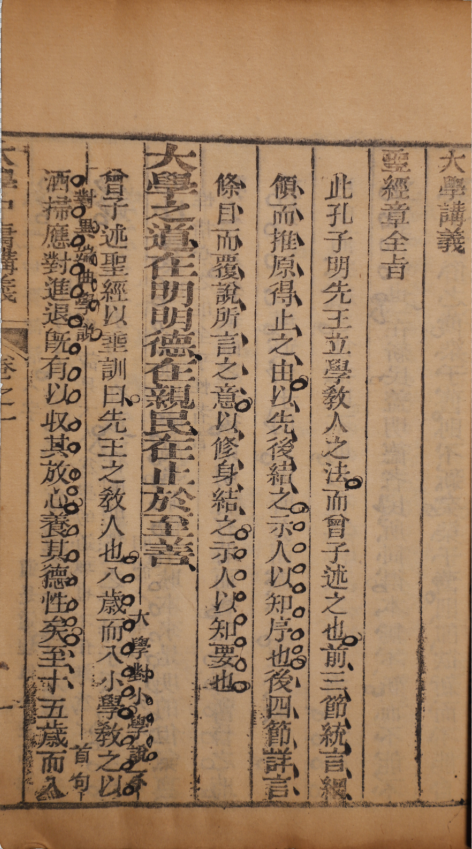 大學講義
聖經章全旨
此孔子明先王立學敎人之法而曾子述之也前三節統言綱
領而推原得止之由以先後結之示人以知序也後四節詳言
條目而覆說所言之意以修身結之示人以知要也
大學之道在明明德在親民在止於至善
大學對小學說不
曾子述聖經以垂訓曰先王之敎人也八歲而入小學敎之以
對異端曲學說
首句
洒掃應對進退旣有以収其放心養其德性矣至十五歲而入
卷之一